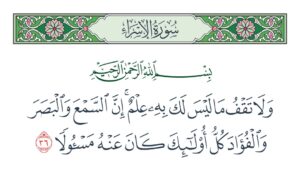 سُورَةُ الإِسْرَاءِ
بِسْمِ اللَّهِ الرَّحْمَٰنِ الرَّحِيمِ
وَلَا تَقْفُ مَا لَيْسَ لَكَ بِهِۦ عِلْمٌ ۚ إِنَّ ٱلسَّمْعَ وَٱلْبَصَرَ
وَٱلْفُؤَادَ كُلُّ أُو۟لَٰٓئِكَ كَانَ عَنْهُ مَسْـُٔولًا ٣٦